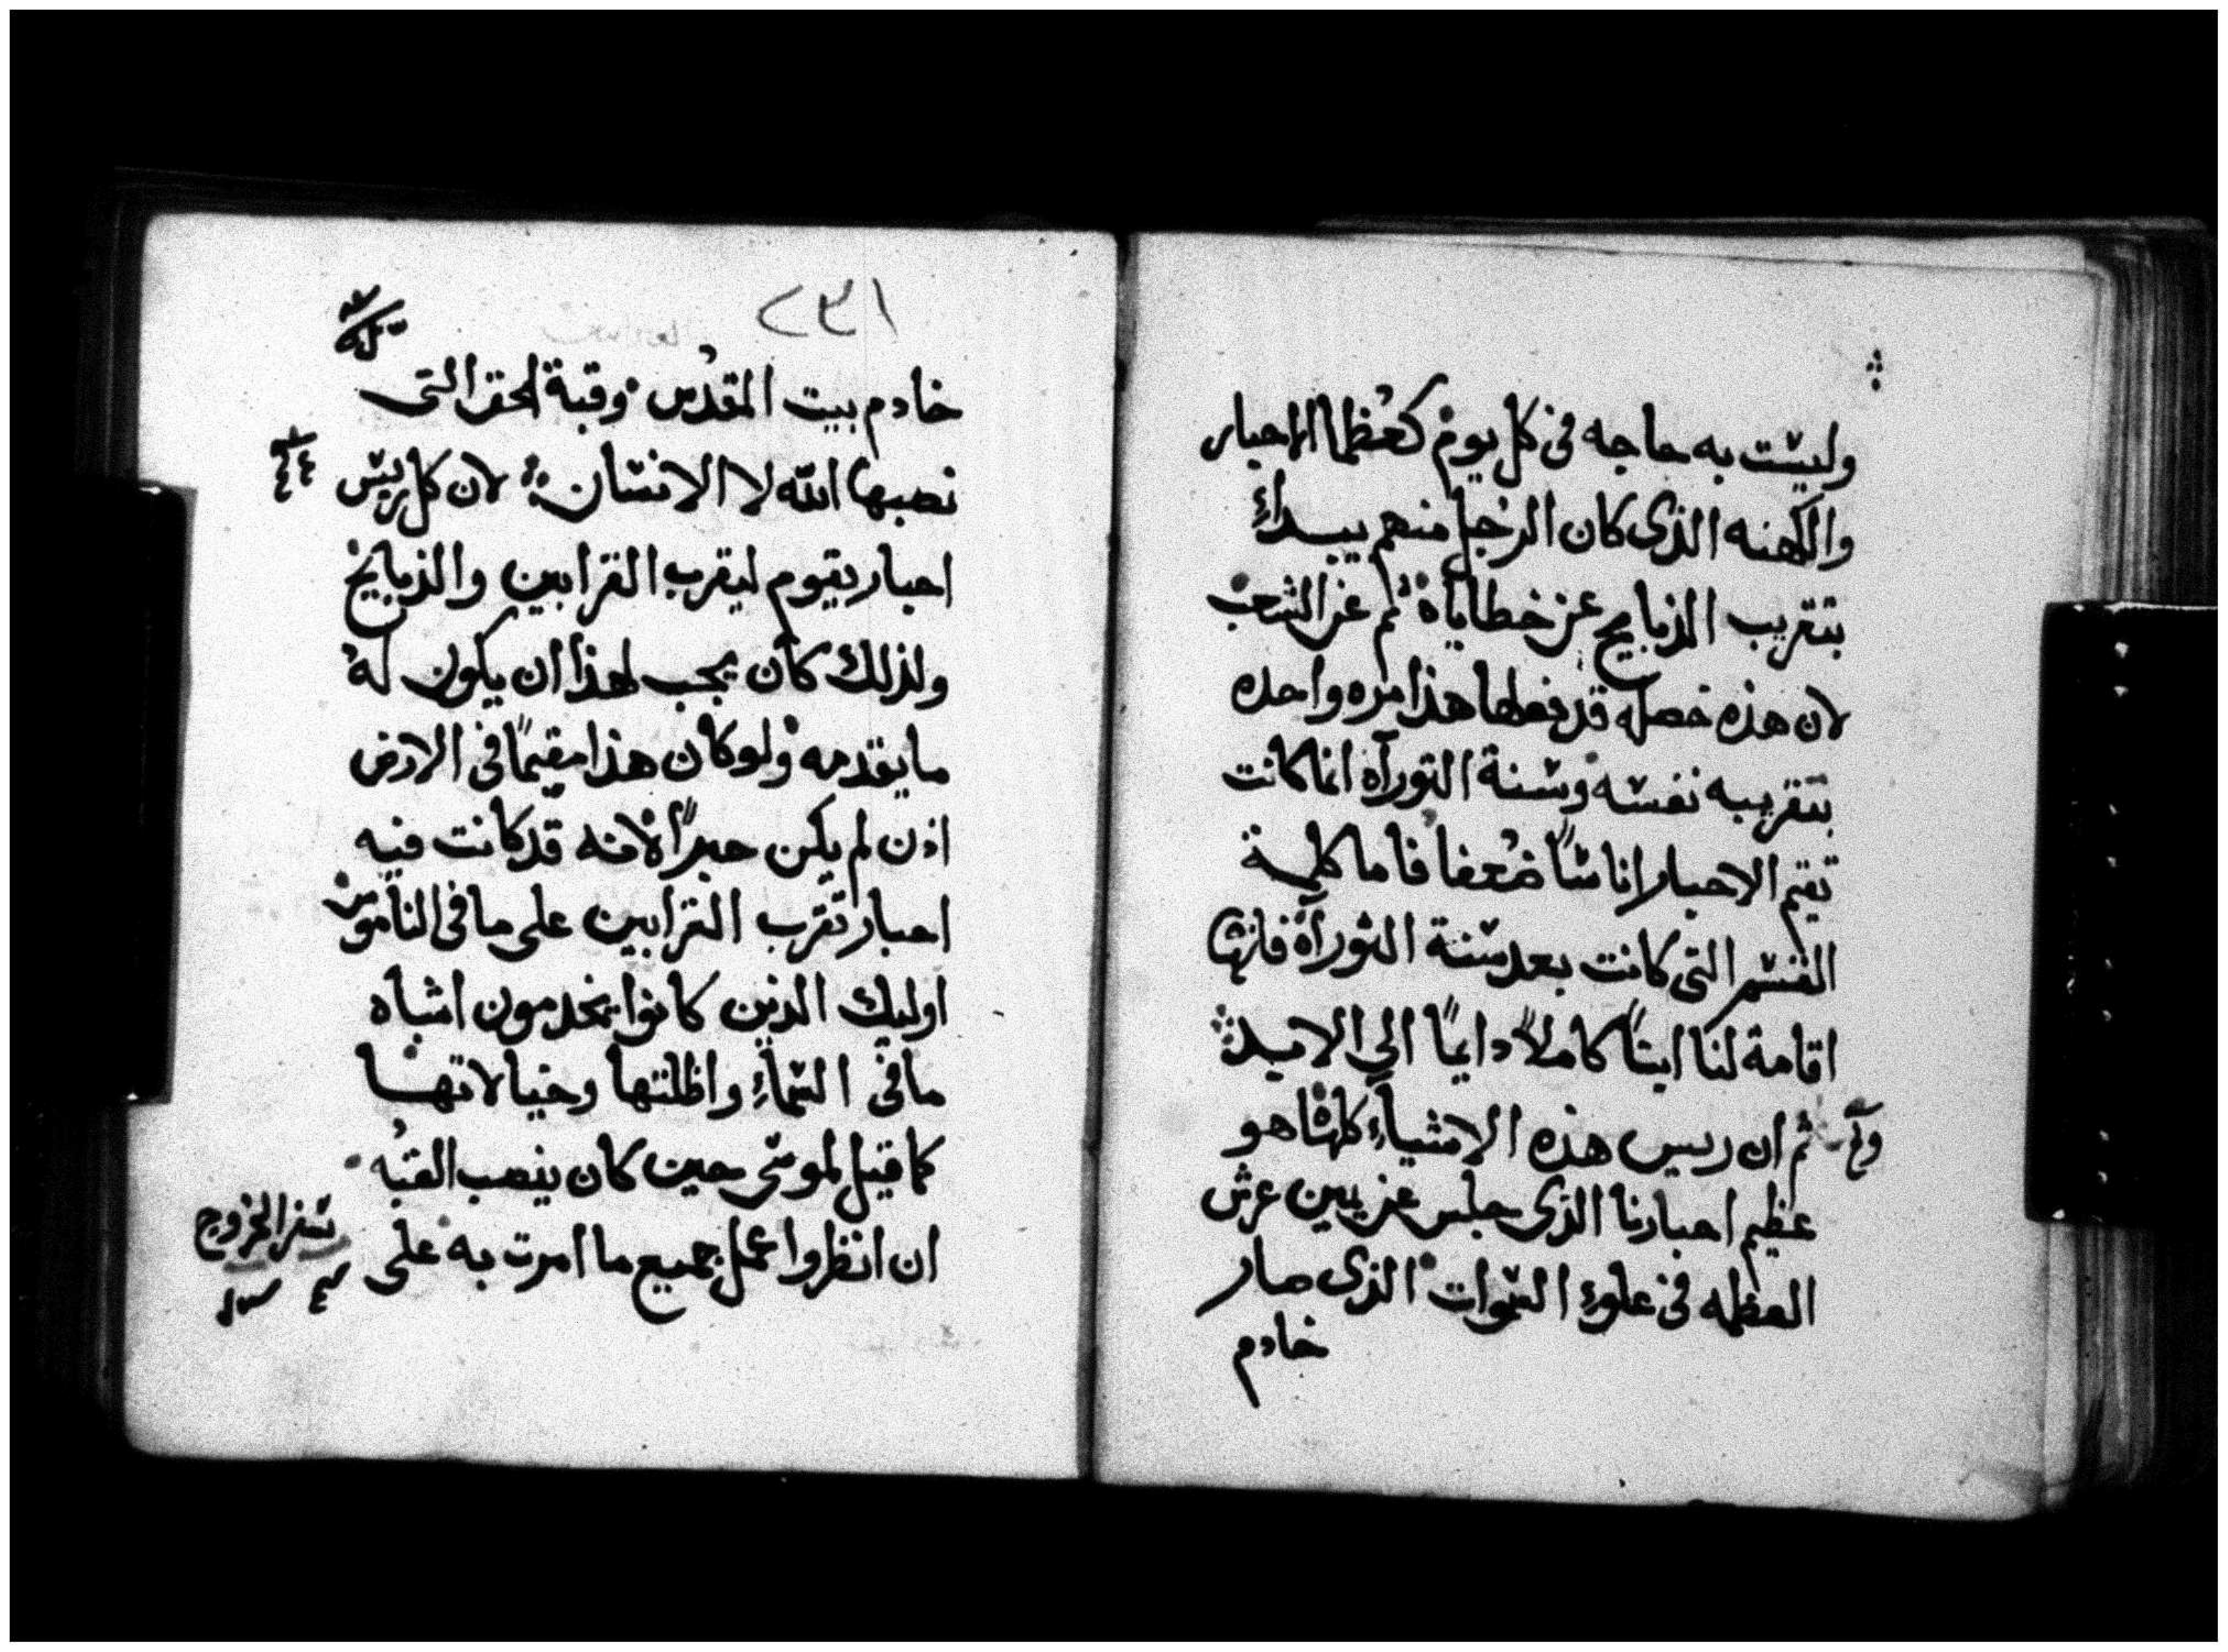 وليست به حاجه في كل يوم كعظما الاحبار
والكهنه الذى كان الرجل منهم يبداء
بتقريب الذبايح عن خطاياه ثم عن الشعب
لان هذه خصله قد فعلها هذا مره واحده
بتقريبه نفسه وسنة التوراة انما كانت
تقيم الاحبار اناسًا ضعفا فاما كلمة
القسم التى كانت بعد سنة التوراة فانها
اقامة لنا ابنًا كاملاً دايمًا الي الابد
ثم ان ريس هذه الاشياء كلها هو
عظيم احبارنا الذى جلس عن يمين عرش
العظمه في علوء السموات الذى صار
خادم
٢٣١
خادم بيت المقدس وقبة الحق التى
نصبها الله لا الانسان لان كل ريس
احبار يقوم ليقرب القرابين والذبايح
ولذلك كان يجب لهذا ان يكون له
ما يقدمه ولو كان هذا مقيمًا في الارض
اذن لم يكن حبرًا لانه قد كانت فيه
احبار تقرب القرابين على ما فى الناموس
اوليك الذين كانوا يخدمون اشباه
ما فى السماء واظلتها وخيالاتها
كما قيل لموسى حين كان ينصب القبه
ان انظر واعمل جميع ما امرت به على
سفر الخروج